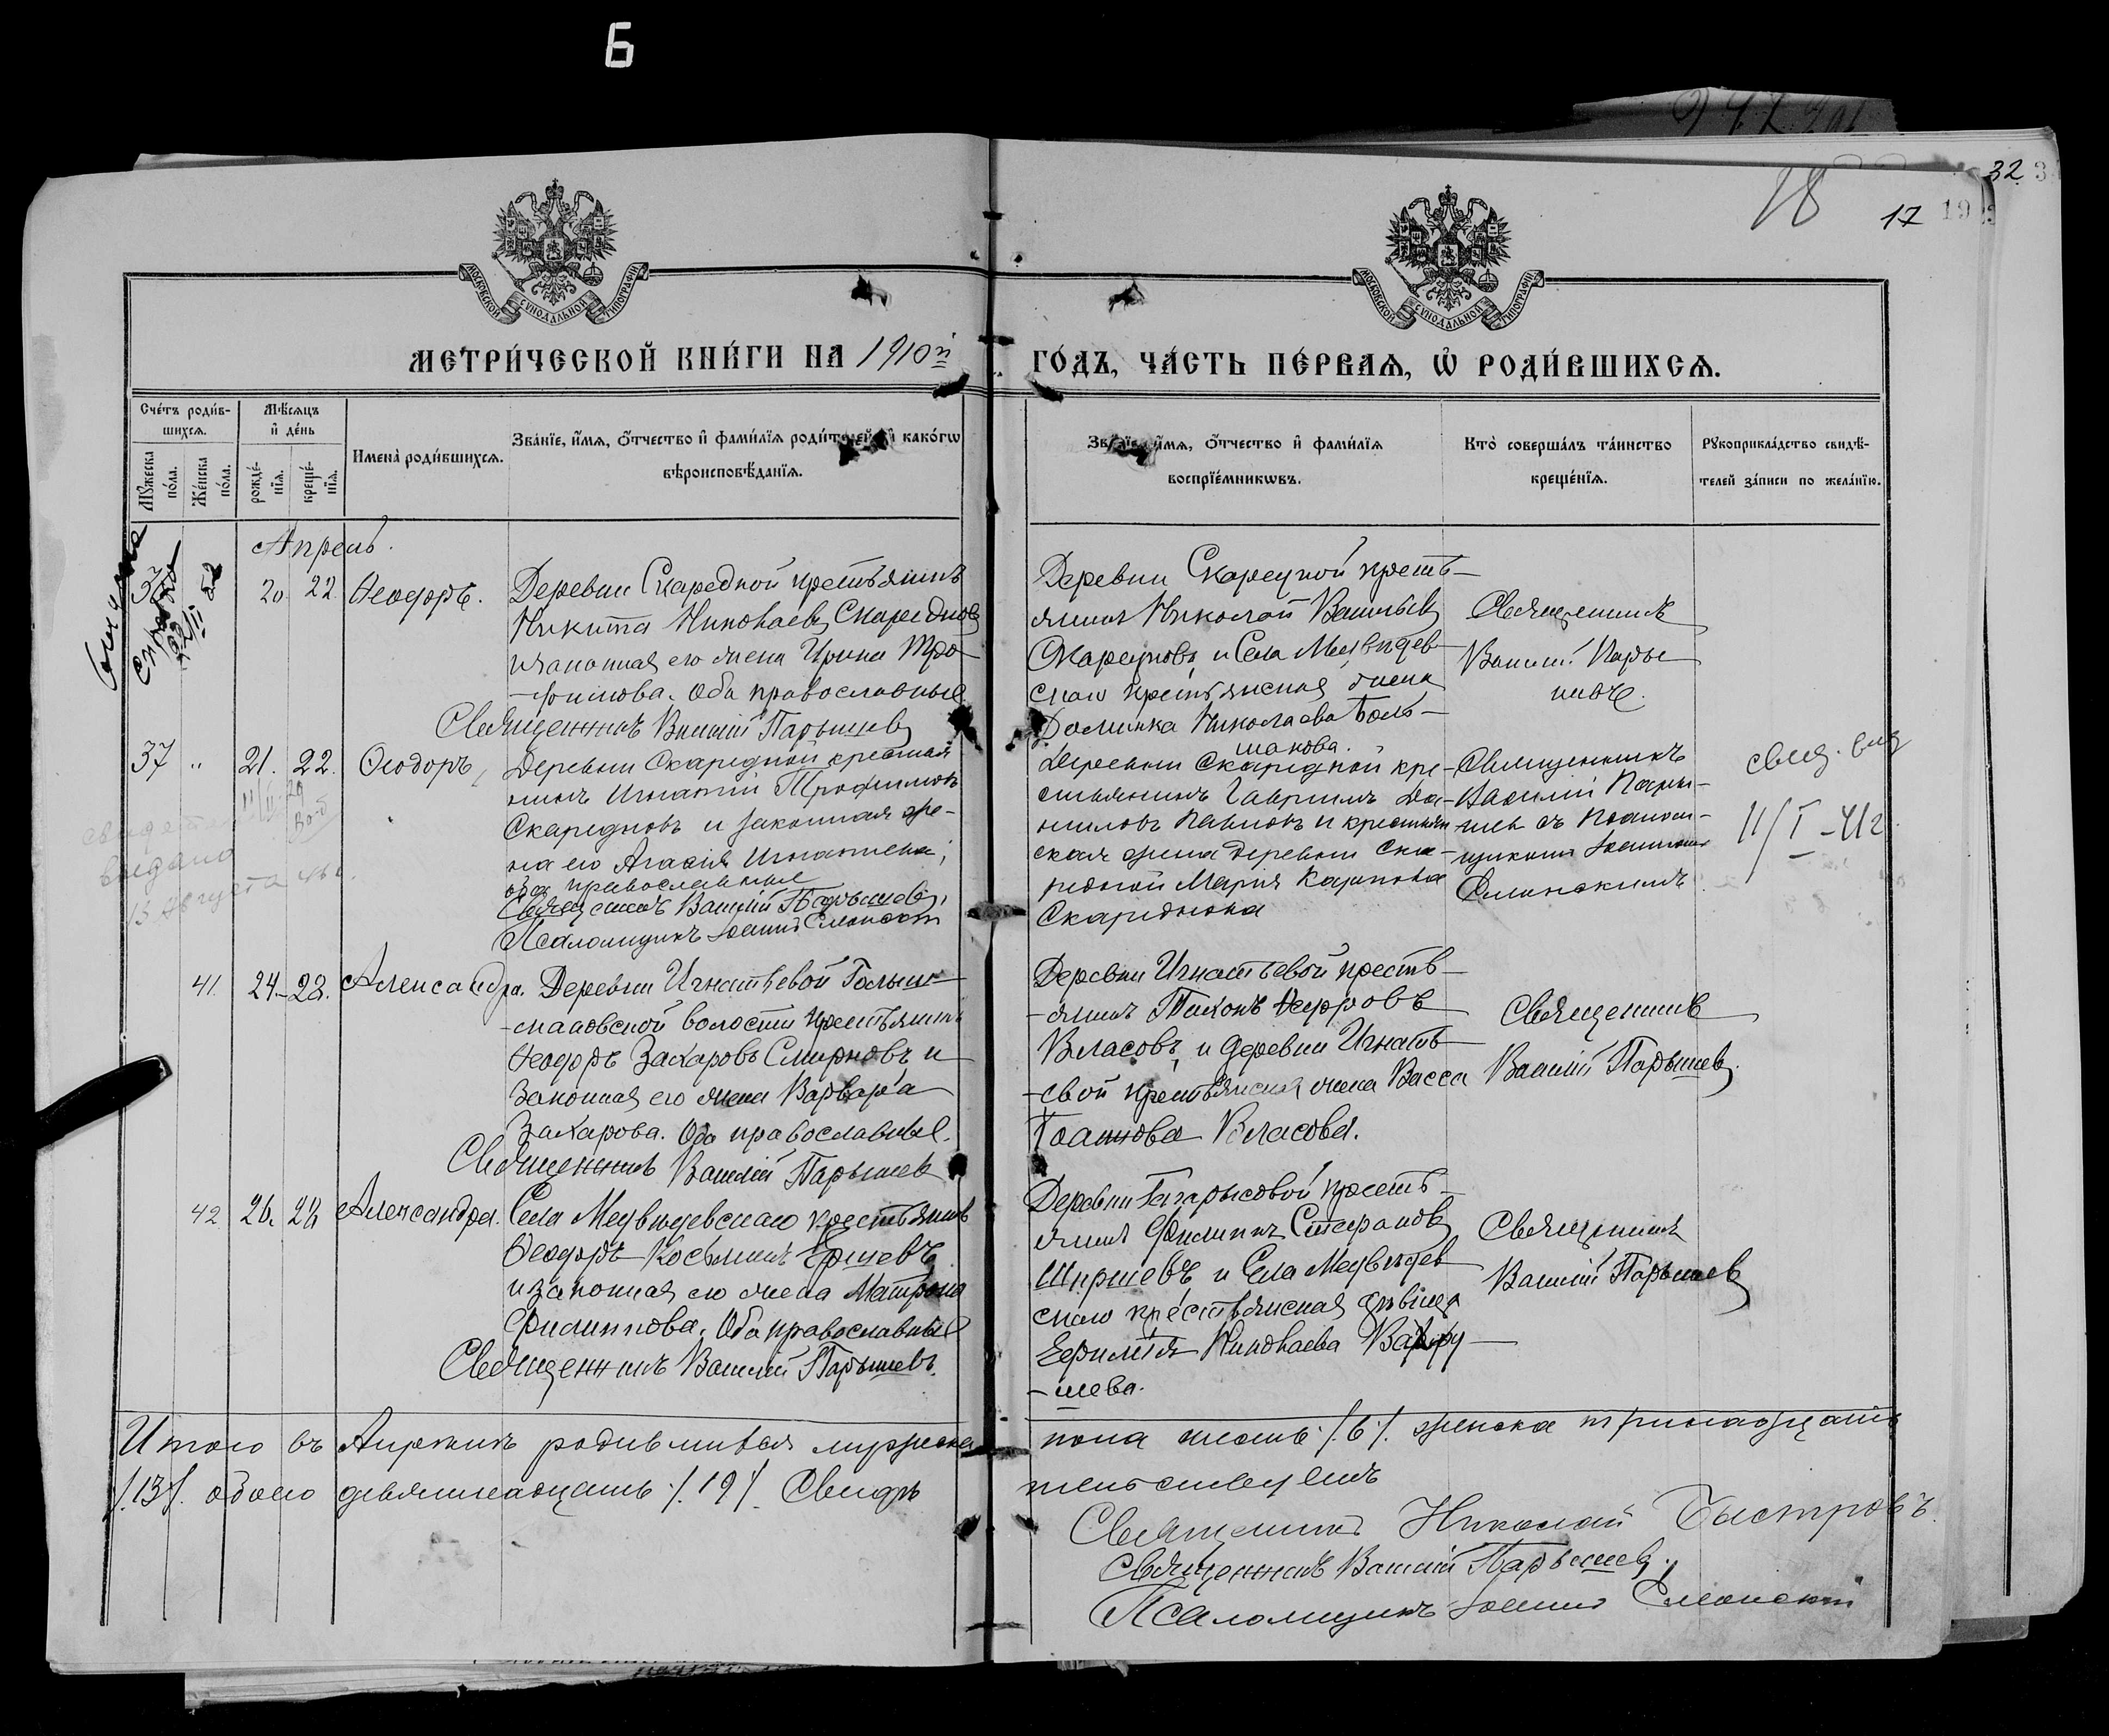 Б
32
18
17
МОСКОВСКОЙ СѴНОДАЛЬНОЙ ТИПОГРАФІИ
МОСКОВСКОЙ СѴНОДАЛЬНОЙ ТИПОГРАФІИ
МЕТРИ́ЧЕСКОЙ КНИ́ГИ НА 1910й
ГО́ДЪ, ЧА́СТЬ ПЕ́РВАѦ, Ѽ РОДИ́ВШИХСѦ.
Сче́тъ роди́в-
шихсѧ.
Мꙋ́жеска по́ла.
Же́нска по́ла.
Мѣ́сѧцъ
и҆ де́нь
рожде́-
нїѧ.
креще́-
нїѧ.
Имена̀ роди́вшихсѧ.
Зва́нїе, и҆́мѧ, ѻ҆́тчество и҆ фами́лїѧ роди́телей и҆ како́гѡ
вѣроисповѣ́данїѧ.
Зва́нїе, и҆́мѧ, ѻ҆́тчество и҆ фами́лїѧ
воспрїе́мникѡвъ.
Кто̀ соверша́лъ та́инство
креще́нїѧ.
Рꙋкоприкла́дство свидѣ́-
телей за́писи по жела́нїю.
Апрель.
20 22 Ѳеодоръ. Деревни Скаредной крестьянинъ
Никита Николаевъ Скаредновъ
и законная его жена Ирина Тро-
-фимова. Оба православные
Священникъ Василій Парышев
Деревни Скаредной кресть-
янинъ Николай Васильев
Скаредновъ и Села Медвѣдев-
скаго крестьянская жена
Домника Николаева Боль-
шакова.
Священникъ
Василій Пары-
шевъ.
37 " 21. 22. Ѳеодоръ, Деревни Скаредной крестья-
нинъ Игнатій Трофимовъ
Скаредновъ и законная же-
на его Агафія Игнатиева;
оба православные
Священникъ Василій Парышевъ,
Псаломщикъ Іоаннъ
Деревни Скаредной кре-
стьянинъ Гавріилъ Да-
ниловъ Павловъ и крестьян-
ская жена деревни Ска-
редной Марія Карпова
Скареднова
Священникъ
Василій Пары-
шев съ Псалом-
щикомъ Іоанномъ
свид. выд
11/I-41г.
выдано
13 Августа
41. 24-28. Александра. Деревни Игнатьевой Голыш-
-мановской волости крестьянинъ
Ѳеодоръ Захаровъ Смирновъ и
законная его жена Варвара
Захарова. Оба православные.
Священникъ Василій Парышев
Деревни Игнатьевой кресть-
-янинъ Тихонъ Ѳедоровъ
Власовъ и деревни Игнать-
-евой крестьянская жена Васса
Іоаннова Власова.
Священникъ
Василій Парышев.
42 26. 28 Александра. Села Медвѣдевскаго крестьянинъ
Ѳеодоръ Косьминъ Ершевъ
и законная его жена Матрона
Филиппова. Оба православные
Священникъ Василій Парышевъ.
кресть-
янинъ Филиппъ Стефановъ
и Села Медвѣдев-
скаго крестьянская дѣвица
Николаева Вахру-
-шева.
Священникъ
Василій Парышев
Итого въ Апрѣлѣ родившихся мужеска
пола шесть /.6/. женска тринадцать
/.13/. обоего девятнадцать /.19/. Свидѣ-
тельствуемъ
Священникъ Николай Быстровъ.
Священникъ Василій Парышев,
Псаломщикъ Іоаннъ